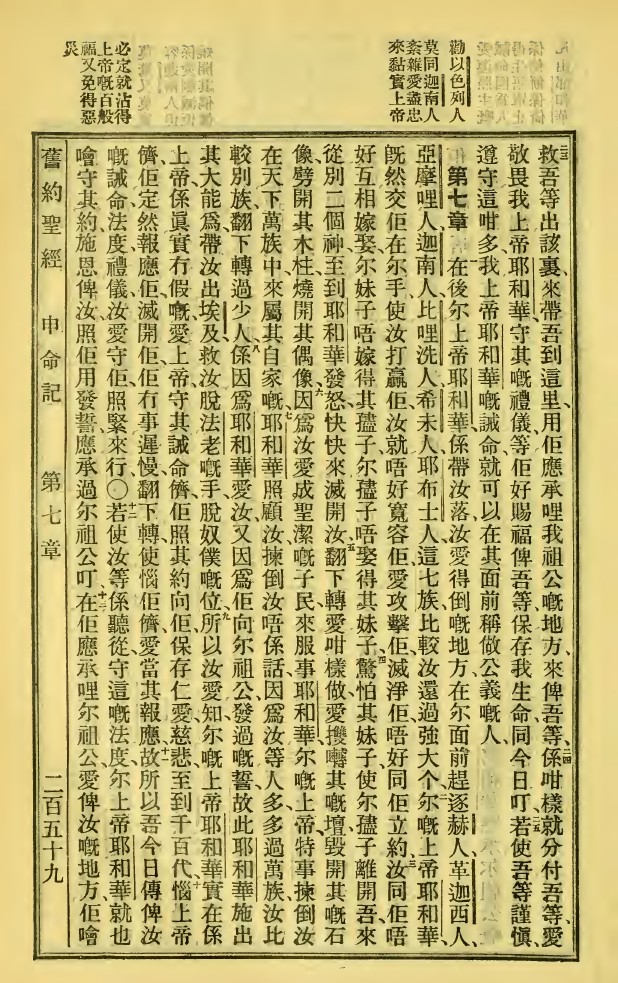 勸以色列人
莫同迦南人
紊雜愛盡忠
來黏實上帝
必定就沾得
上帝嘅百般
福又免得惡
災
救吾等出該裏、來帶吾到這里、用佢應承哩我祖公嘅地方、來俾吾等、二四係咁樣就分付吾等、愛
敬畏我上帝耶和華、守其嘅禮儀等佢好賜福俾吾等、保存我生命、同今日叮、二五若使吾等謹愼、
遵守這咁多、我上帝耶和華嘅誡命、就可以在其面前稱做公義嘅人、
第七章 一在後尔上帝耶和華、係帶汝落汝愛得倒嘅地方、在尔面前趕逐赫人、革迦西人、
亞摩哩人、迦南人、比哩洗人、希未人、耶布士人、這七族比較汝還過強大个、二尔嘅上帝耶和華、
旣然交佢在尔手、使汝打贏佢、汝就唔好寬容佢、愛攻擊佢、滅淨佢、唔好同佢立約、三汝同佢唔
好互相嫁娶、尔妹子唔嫁得其𡥧子、尔𡥧子唔娶得其妹子、四驚怕其妹子、使尔𡥧子離開吾、來
從別二個神、至到耶和華發怒、快快來滅開汝、五翻下轉愛咁樣做、愛攪𡃓其嘅壇、毀開其嘅石
像、劈開其木柱、燒開其偶像、六因爲汝愛成聖潔嘅子民、來服事耶和華尔嘅上帝、特事揀倒汝
在天下萬族中、來屬其自家嘅、七耶和華照顧汝、揀倒汝、唔係話因爲汝等人多、多過萬族、汝比
較別族、翻下轉過少人、八係因爲耶和華愛汝、又因爲佢向尔祖公發過嘅誓、故此耶和華施出
其大能爲、帶汝出埃及、救汝脫法老嘅手、脫奴僕嘅位、九所以汝愛知、尔嘅上帝耶和華、實在係
上帝、係眞實冇假嘅、愛上帝守其誡命儕、佢照其約向佢保存仁愛慈悲、至到千百代、十惱上帝
儕、佢定然報應佢、滅開佢、佢冇事遲慢、翻下轉使惱佢儕、愛當其報應、十一故所以吾今日傳俾汝
嘅誡命、法度、禮儀、汝愛守佢、照緊來行、〇十二若使汝等係聽從守這嘅法度、尔上帝耶和華、就也
噲守其約、施恩俾汝、照佢用發誓、應承過尔祖公叮、十三在佢應承哩尔祖公、愛俾汝嘅地方、佢噲
舊約聖經 申命記 第七章 二百五十九